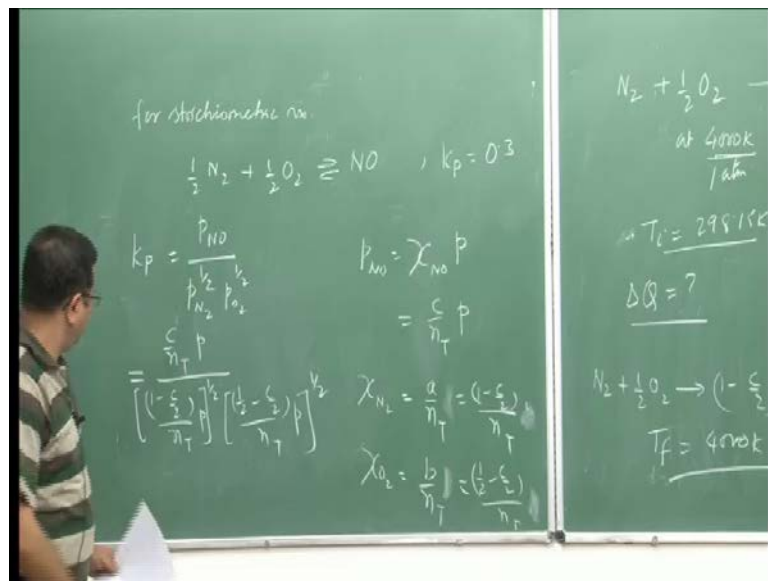 for stochiometric rxn.
½ N₂ + ½ O₂ ⇌ NO , kp = 0.3
kp = p_NO / (p_N₂^½ p_O₂^½)
= (c/n_T) p / ([((1 - c/2)/n_T) p]^½ [((½ - c/2)/n_T) p]^½)
p_NO = χ_NO p
= (c/n_T) p
χ_N₂ = a/n_T = (1 - c/2)/n_T
χ_O₂ = b/n_T = (½ - c/2)/n_T
N₂ + ½ O₂ —
at 4000K
1 atm
Ti = 298.15K
ΔQ = ?
N₂ + ½ O₂ → (1 - c/2
Tf = 4000K